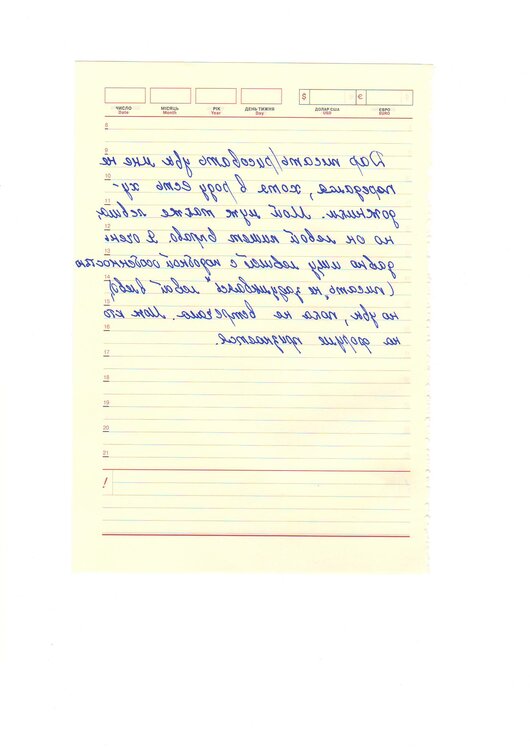 $ €
ЧИСЛО МІСЯЦЬ РІК ДЕНЬ ТИЖНЯ ДОЛАР США ЄВРО
Date Month Year Day USD EURO
8
9
Дар писать/рисовать увы мне не
10
передался, хотя в роду есть ху-
11
дожники. Мой муж также левша,
12
но он левой пишет вправо. Я очень
13
давно ищу левшей с подобной особенностью
14
(писать "не задумываясь" левой влево)
15
но увы, пока не встречала. Мож кто
16
на форуме признается.
17
18
19
20
21
!